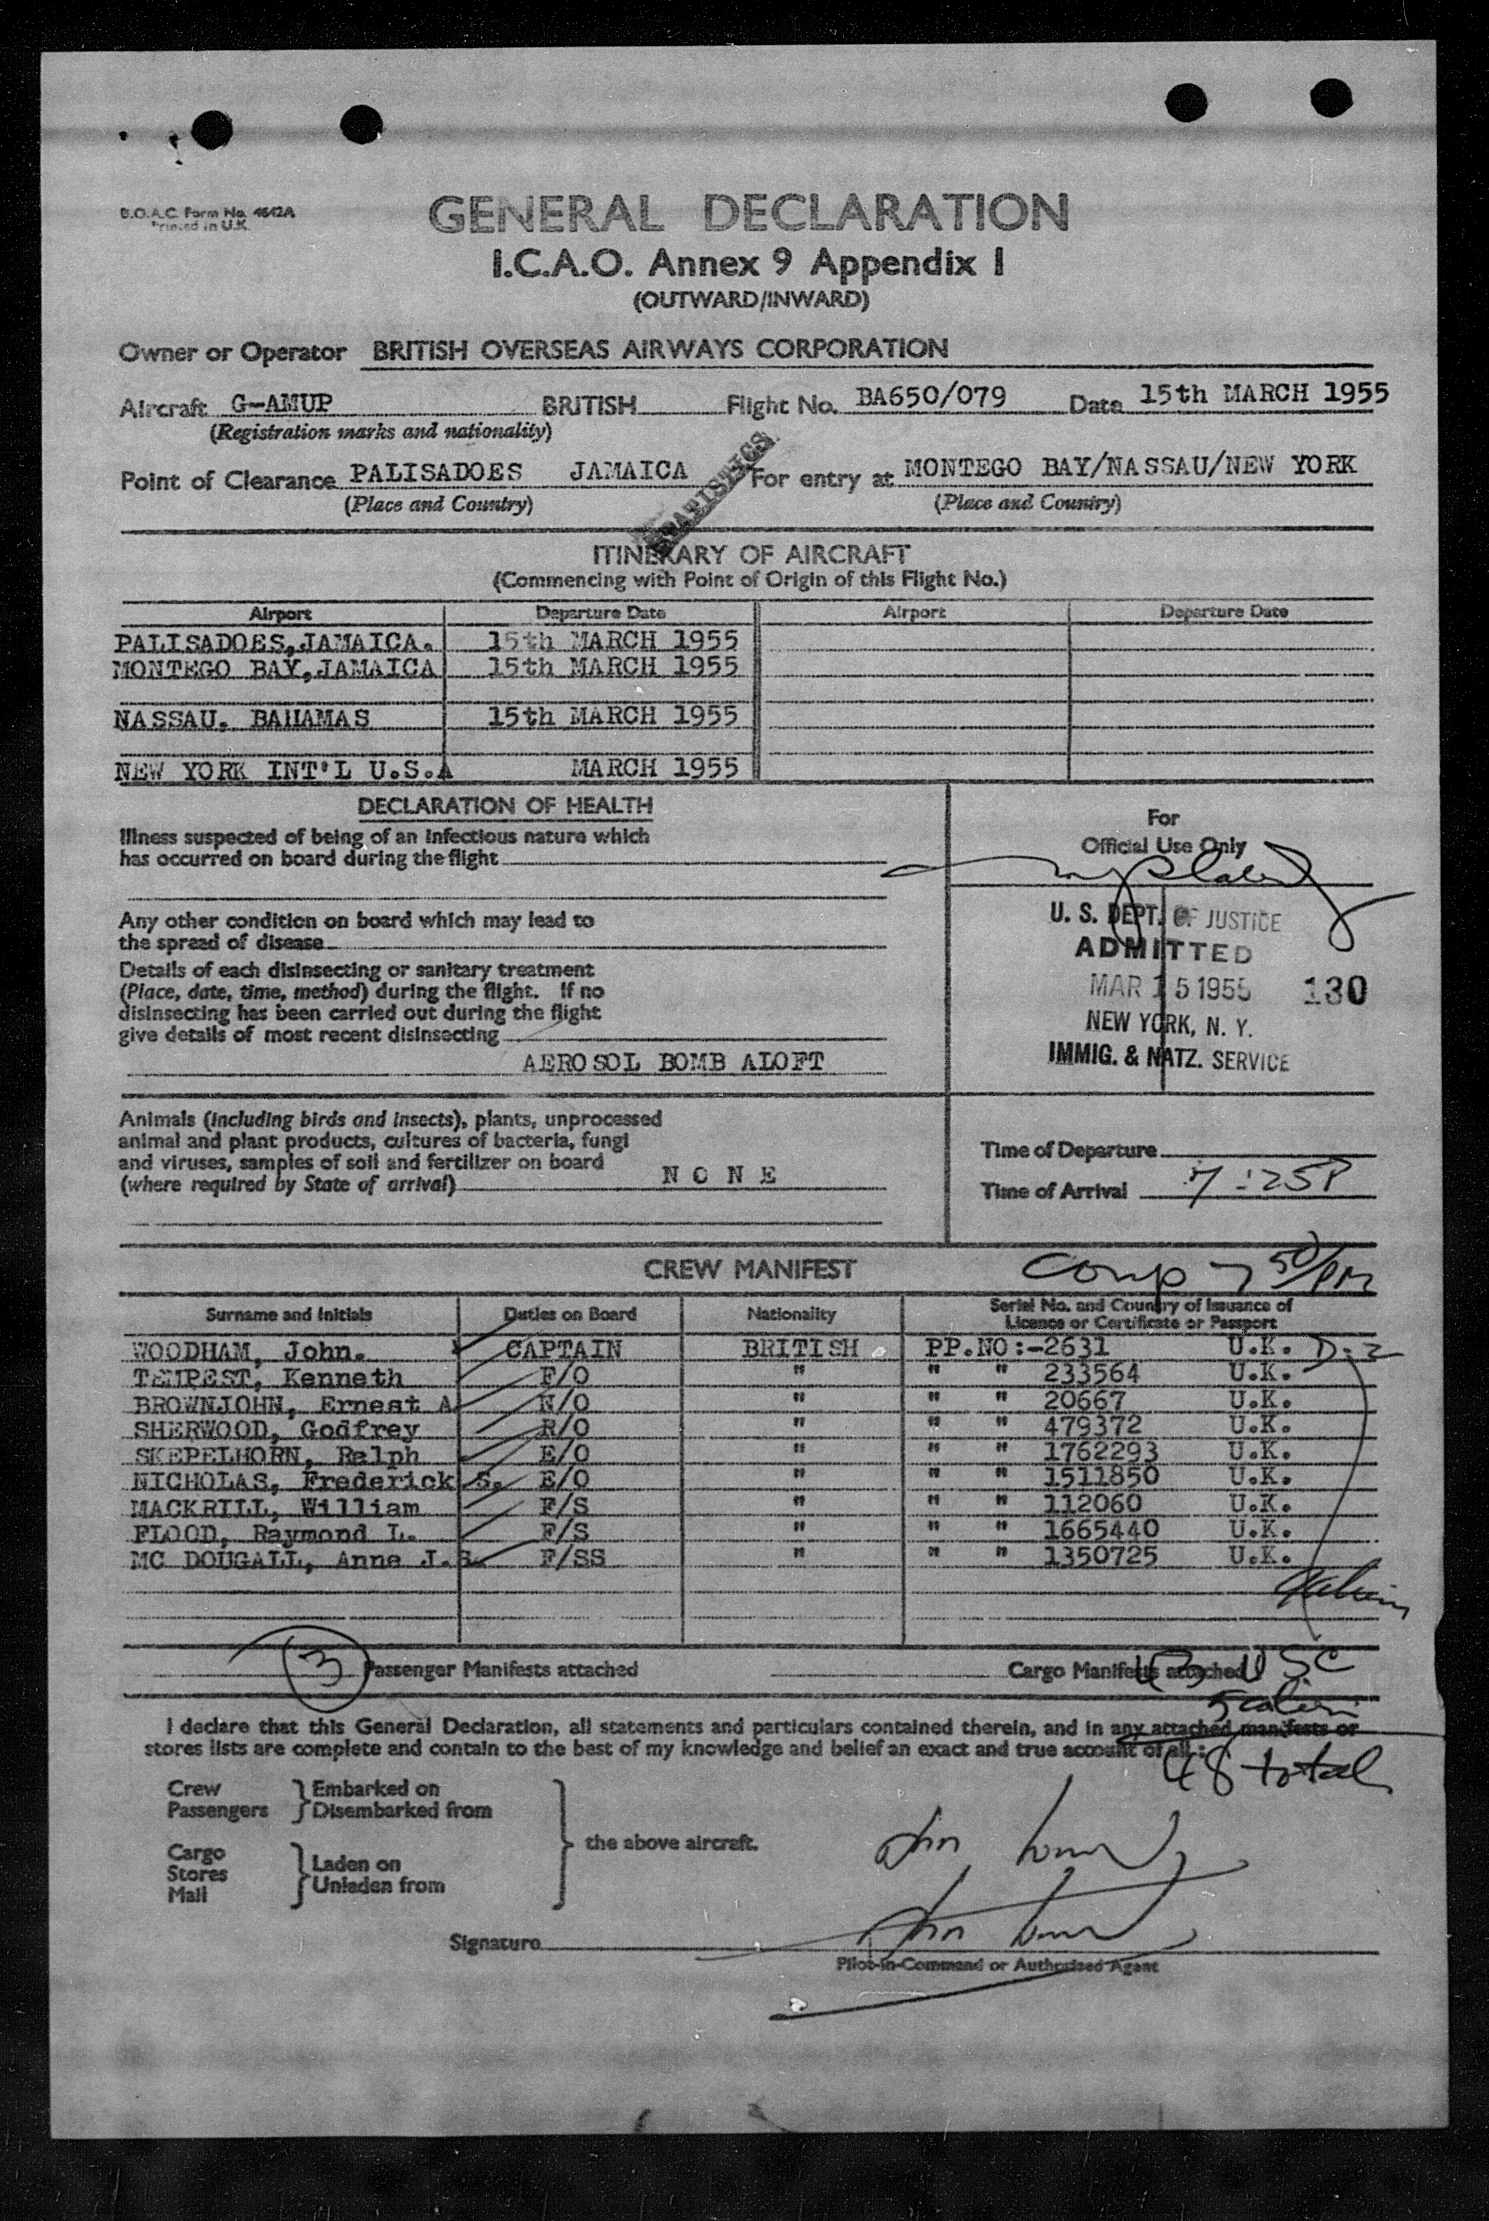 B.O.A.C. Form No. 4642A
Printed in U.K.
GENERAL DECLARATION
I.C.A.O. Annex 9 Appendix I
(OUTWARD/INWARD)
Owner or Operator BRITISH OVERSEAS AIRWAYS CORPORATION
Aircraft G-AMUP BRITISH Flight No. BA650/079 Date 15th MARCH 1955
(Registration marks and nationality)
STATISTICS
Point of Clearance PALISADOES JAMAICA For entry at MONTEGO BAY/NASSAU/NEW YORK
(Place and Country) (Place and Country)
ITINERARY OF AIRCRAFT
(Commencing with Point of Origin of this Flight No.)
Airport Departure Date Airport Departure Date
PALISADOES,JAMAICA. 15th MARCH 1955
MONTEGO BAY,JAMAICA 15th MARCH 1955
NASSAU. BAHAMAS 15th MARCH 1955
NEW YORK INT'L U.S.A MARCH 1955
DECLARATION OF HEALTH
Illness suspected of being of an infectious nature which
has occurred on board during the flight
Any other condition on board which may lead to
the spread of disease
Details of each disinsecting or sanitary treatment
(Place, date, time, method) during the flight. If no
disinsecting has been carried out during the flight
give details of most recent disinsecting
AEROSOL BOMB ALOFT
For
Official Use Only
U. S. DEPT. OF JUSTICE
ADMITTED
MAR 15 1955 130
NEW YORK, N. Y.
IMMIG. & NATZ. SERVICE
Animals (including birds and insects), plants, unprocessed
animal and plant products, cultures of bacteria, fungi
and viruses, samples of soil and fertilizer on board
(where required by State of arrival) N O N E
Time of Departure
Time of Arrival 7:25P
CREW MANIFEST Comp 7 50/PM
Surname and Initials Duties on Board Nationality Serial No. and Country of Issuance of
Licence or Certificate or Passport
WOODHAM, John. CAPTAIN BRITISH PP.NO:-2631 U.K. D-2
TEMPEST, Kenneth F/O " " " 233564 U.K.
BROWNJOHN, Ernest A. N/O " " " 20667 U.K.
SHERWOOD, Godfrey R/O " " " 479372 U.K.
SKEPELHORN, Ralph E/O " " " 1762293 U.K.
NICHOLAS, Frederick S. E/O " " " 1511850 U.K.
MACKRILL, William F/S " " " 112060 U.K.
FLOOD, Raymond L. F/S " " " 1665440 U.K.
MC DOUGALL, Anne J.S. F/SS " " " 1350725 U.K.
3 Passenger Manifests attached Cargo Manifests attached
43 USC
5 alien
I declare that this General Declaration, all statements and particulars contained therein, and in any attached manifests or
stores lists are complete and contain to the best of my knowledge and belief an exact and true account of all :
48 total
Crew Embarked on
Passengers Disembarked from
the above aircraft.
Cargo Laden on
Stores Unladen from
Mail
Signature
Pilot-in-Command or Authorised Agent